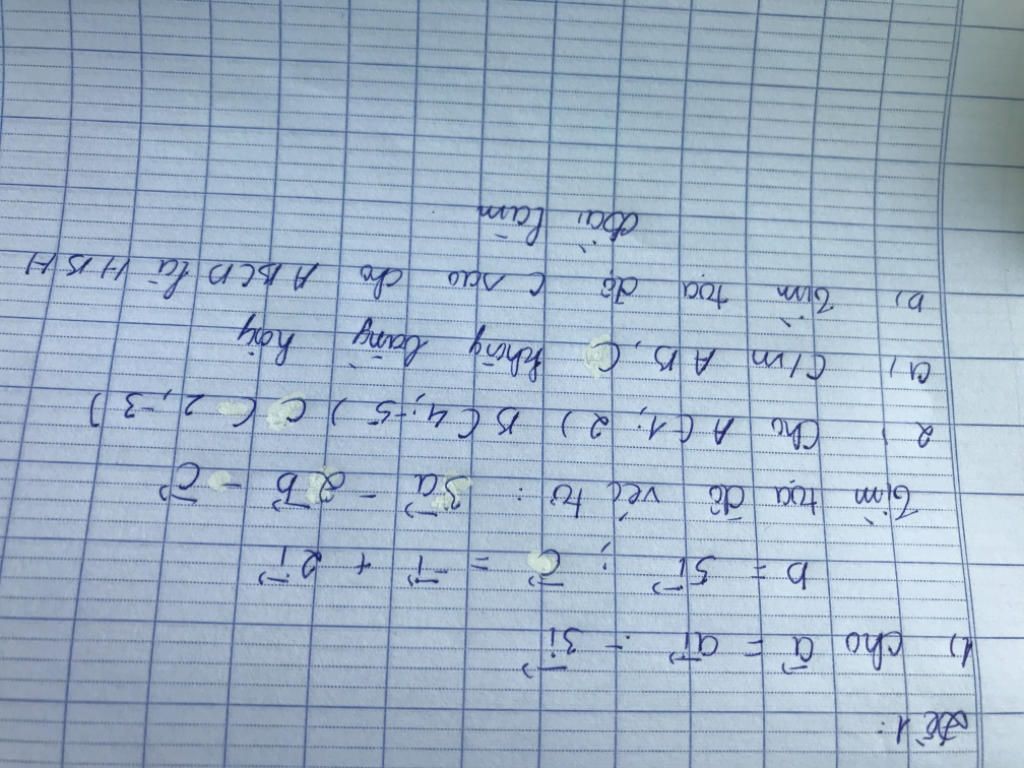 Đề 1:
1) cho a⃗ = 2i⃗ - 3i⃗
b = 5i⃗ ; c⃗ = -i⃗ + 2i⃗
Tìm tọa độ véc tơ : 3a⃗ - 2b⃗ - c⃗
2) Cho A (-1; 2) B (4; -5) C (2, -3)
a) C/m A B, C không bằng hàg
b) Tìm tọa độ C sao cho ABCD là HBH
Bài làm